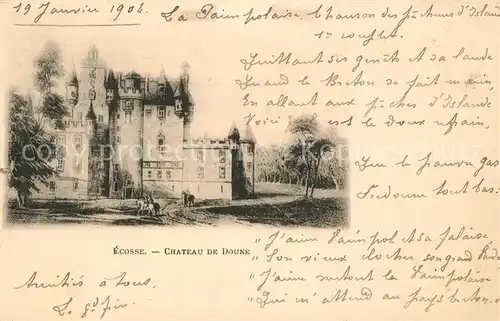 19 Janvier 1904.
La Paimpolaise. Chanson des pêcheurs d'Islande
1er couplet.
Quittant ses genêts et sa lande
Quand le Breton se fait marin,
En allant aux pêches d'Islande
Voici est le doux refrain,
Que le pauvre gas
Fredonne tout bas:
"J'aime Paimpol et sa falaise
"Son vieux clocher son grand Pardon
"J'aime surtout la Paimpolaise
"Qui m'attend au pays breton.
ÉCOSSE. — CHATEAU DE DOUNE
Amitiés à tous.